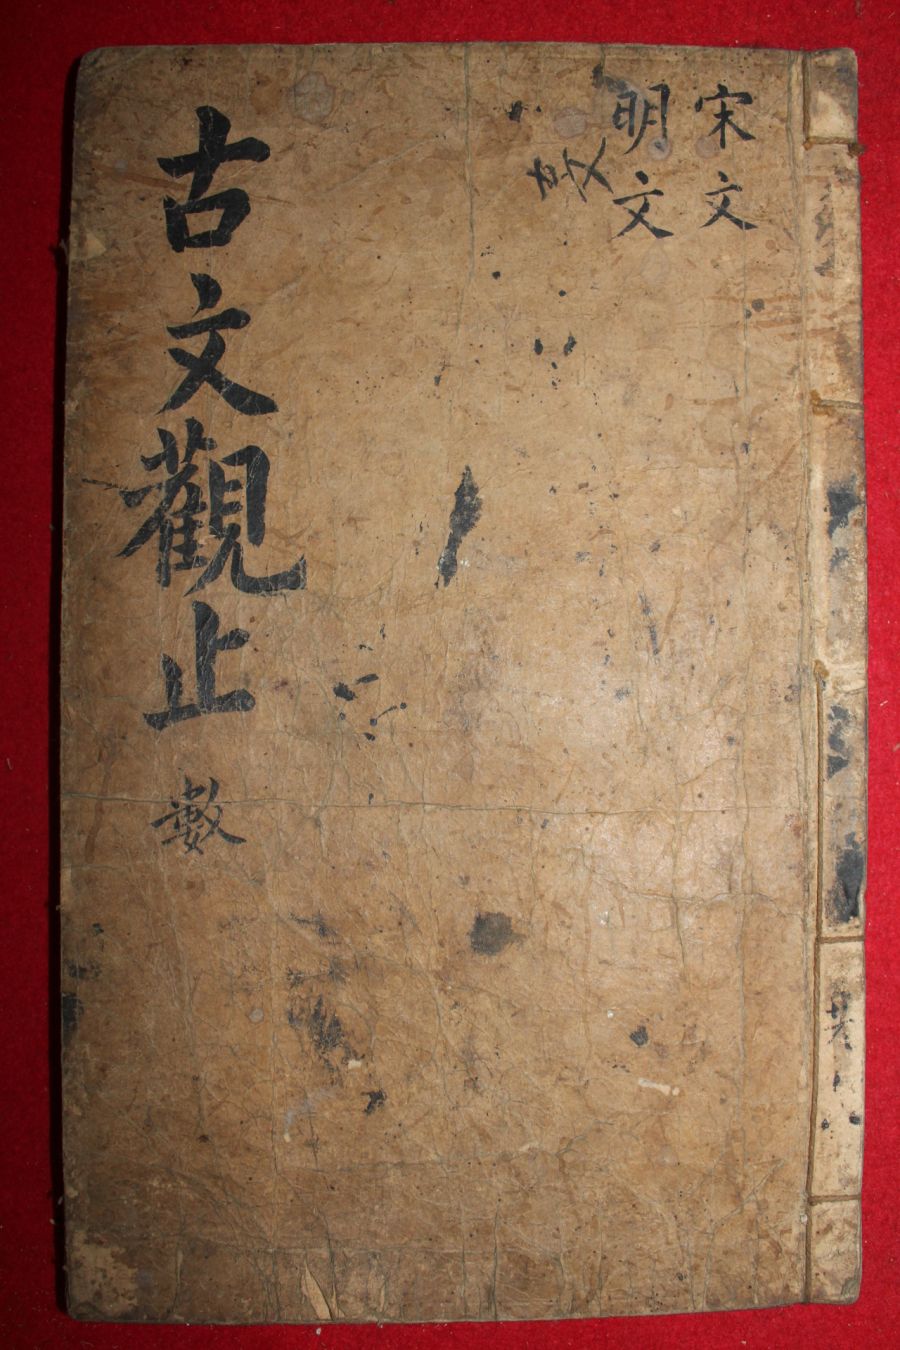 宋文
明文
古文觀止 數